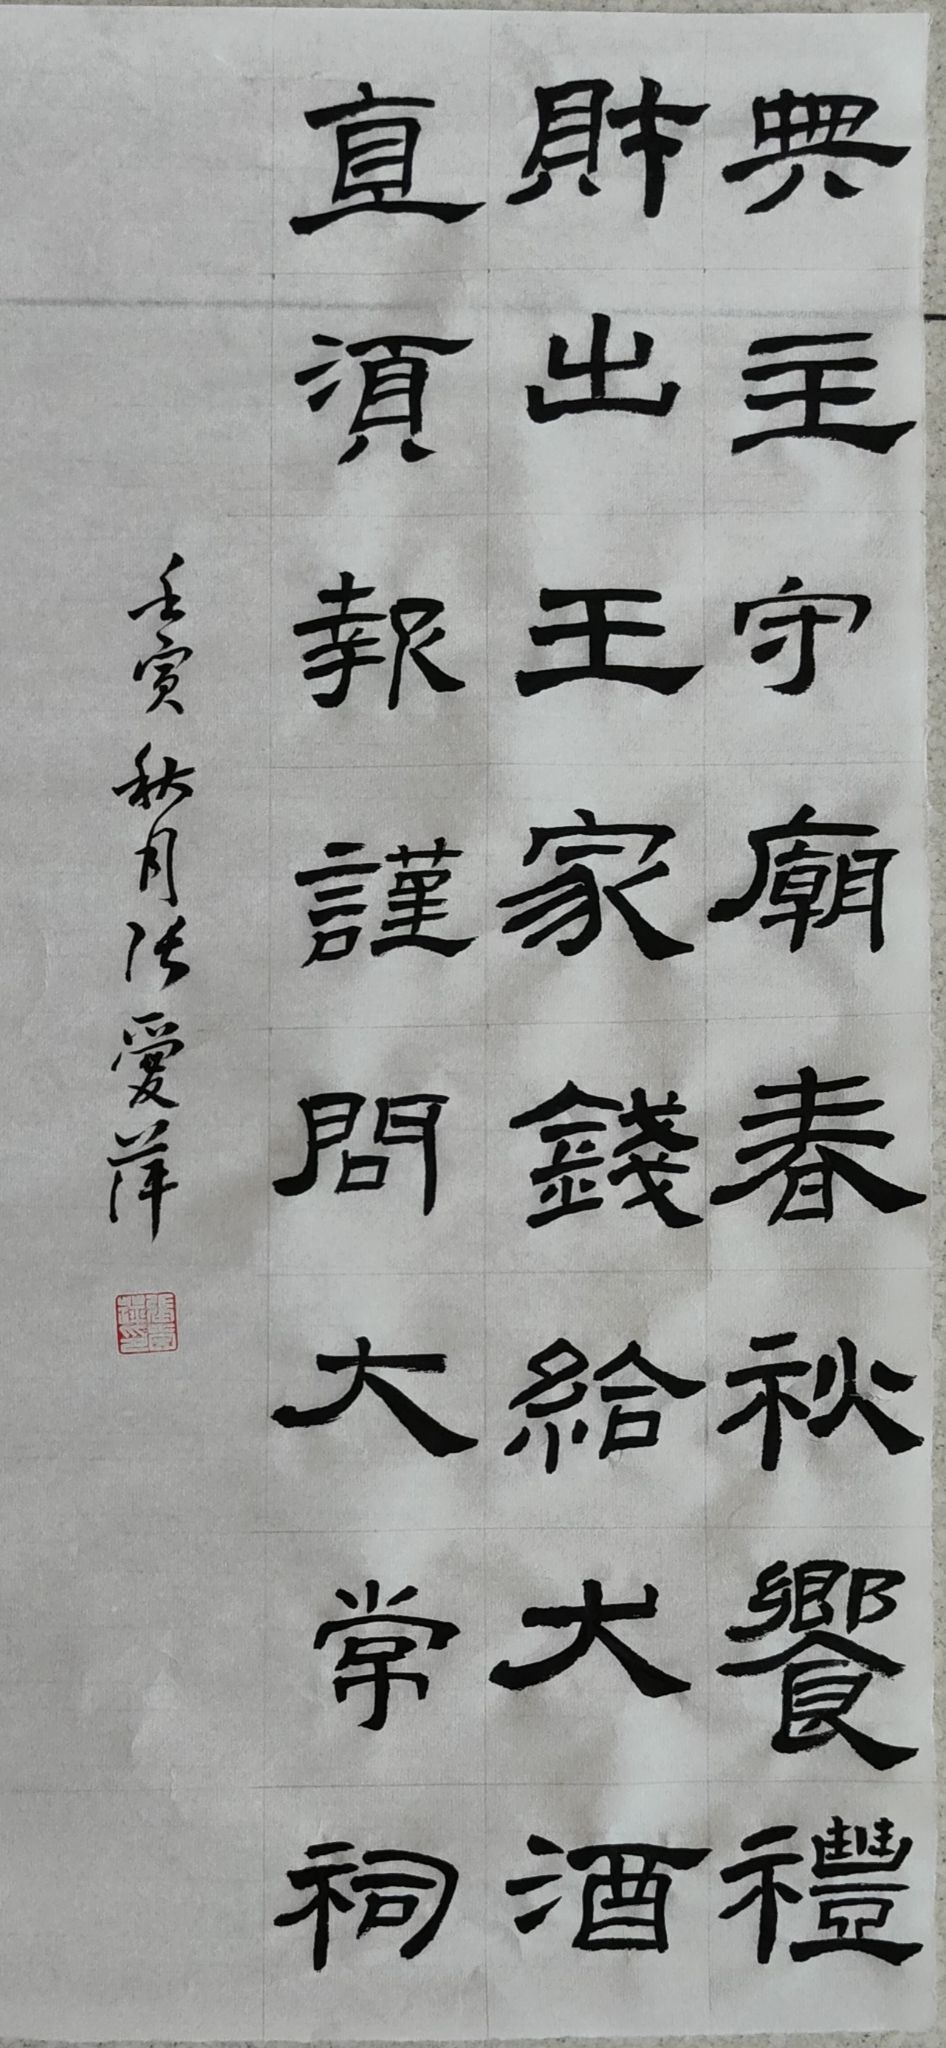 典主守廟春秋饗禮
財出王家錢給犬酒
直須報謹問大常祠
壬寅秋月張愛萍